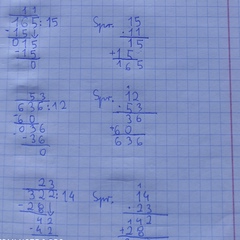 11
165:15 Spr. 15
-15↓ ·11
015 15
-15 +15
0 165
53
636:12 Spr. 12
-60 ·53
036 36
-36 +60
0 636
23
322:14 Spr. 14
-28↓ ·23
42 42
-42 +28